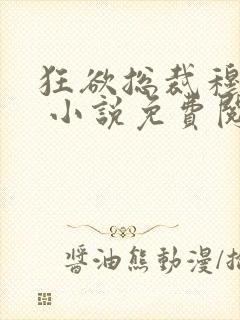 狂欲总裁穆
小說免費閱
醬油熊動漫/插